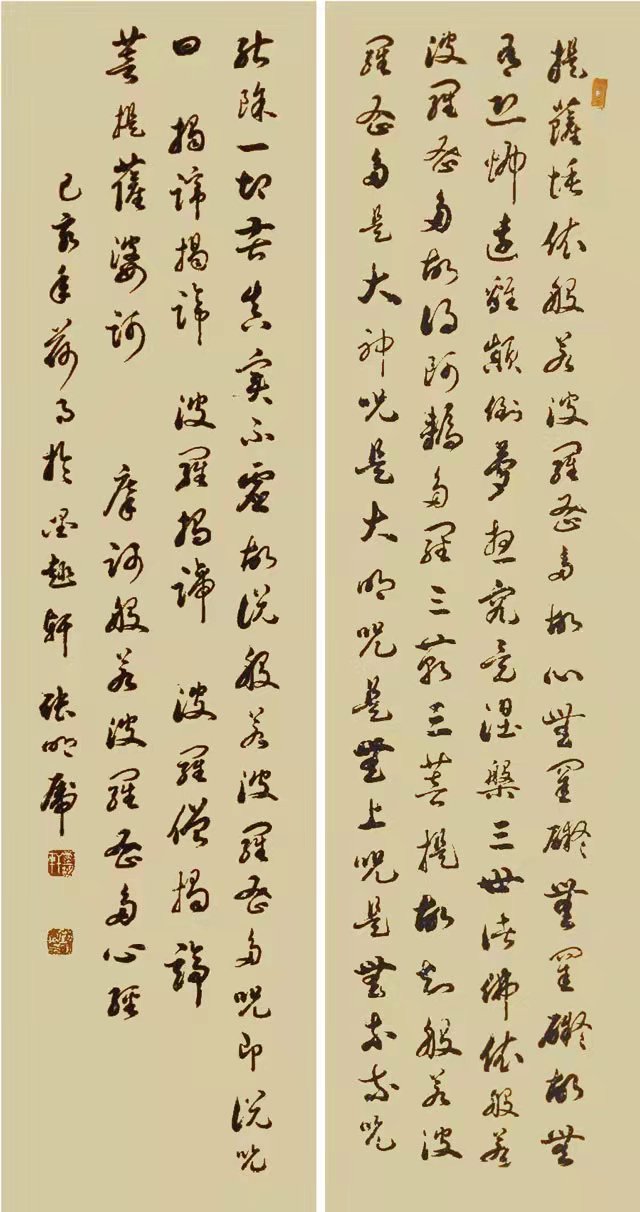 提薩埵依般若波羅蜜多故心無罣礙無罣礙故無
有恐怖遠離顛倒夢想究竟涅槃三世諸佛依般若
波羅蜜多故得阿耨多羅三藐三菩提故知般若波
羅蜜多是大神呪是大明呪是無上呪是無等等呪
能除一切苦真實不虛故説般若波羅蜜多呪即説呪
曰 揭諦揭諦 波羅揭諦 波羅僧揭諦
菩提薩婆訶 摩訶般若波羅蜜多心經
己亥年荷月於墨趣軒 張明虎